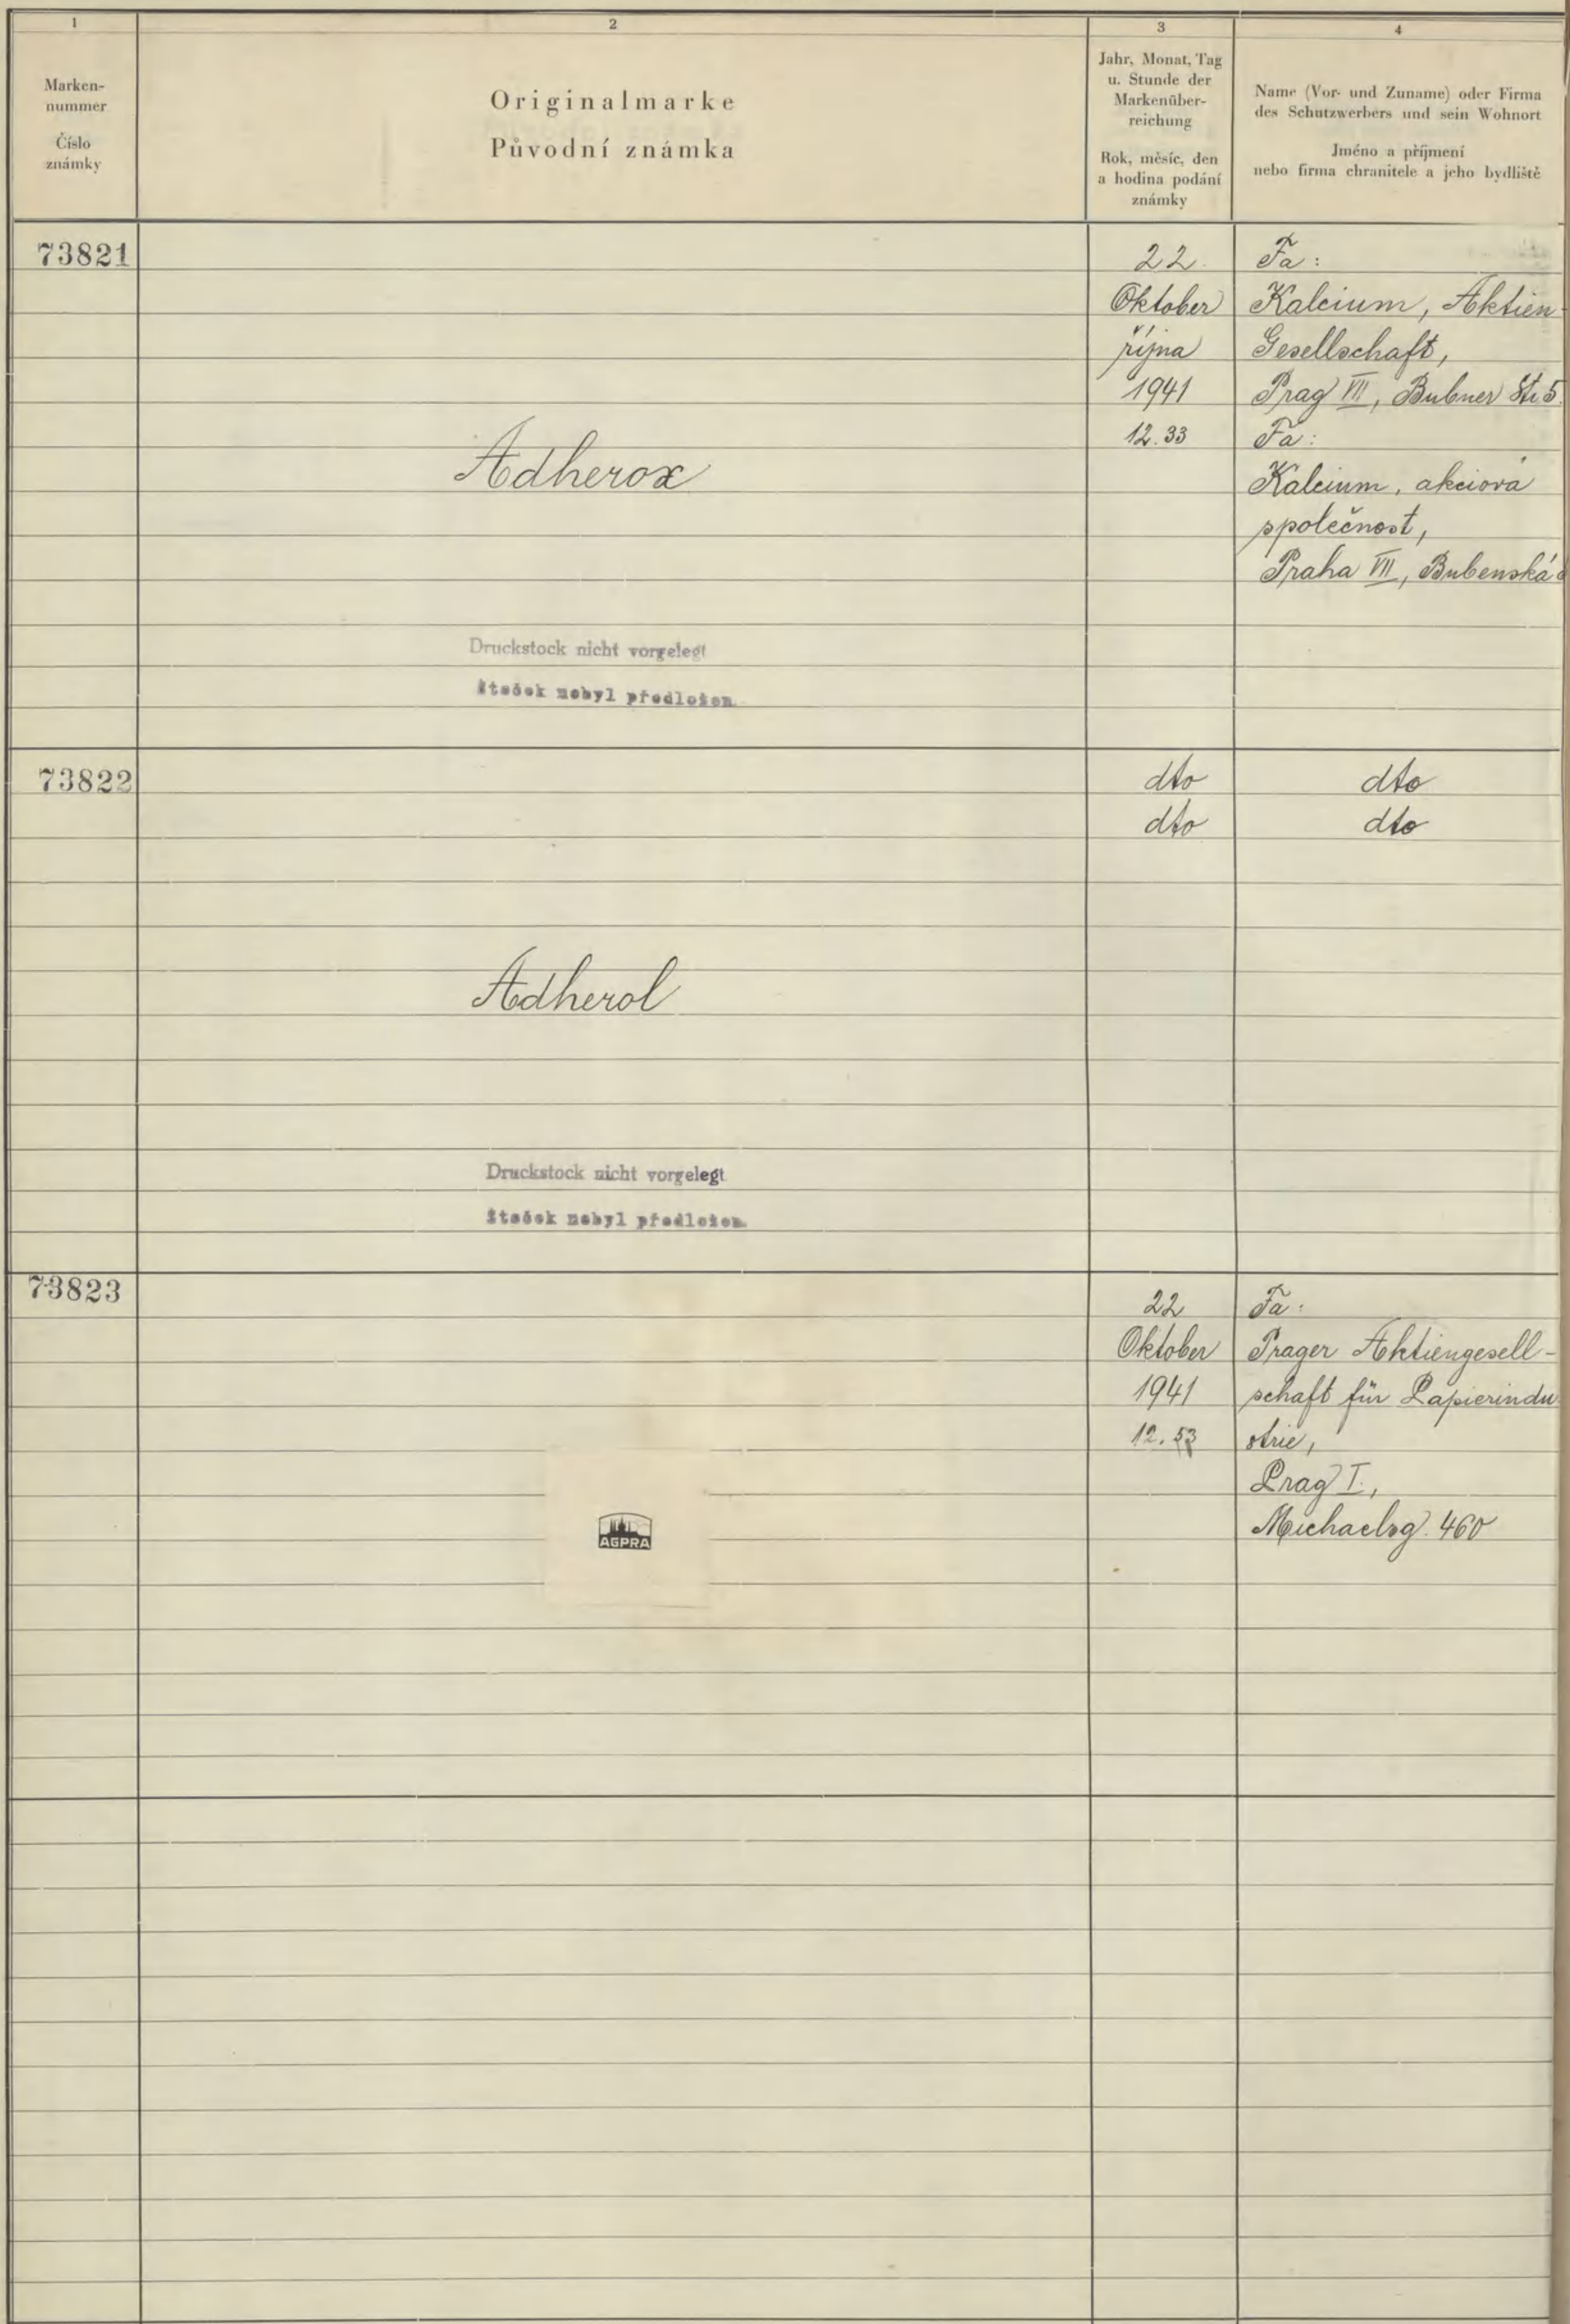 1
2
3
4
Marken-
nummer
Číslo
známky
Originalmarke
Původní známka
Jahr, Monat, Tag
u. Stunde der
Markenüber-
reichung
Rok, měsíc, den
a hodina podání
známky
Name (Vor- und Zuname) oder Firma
des Schutzwerbers und sein Wohnort
Jméno a příjmení
nebo firma chranitele a jeho bydliště
73821
Adherox
Druckstock nicht vorgelegt
Štoček nebyl předložen
22.
Oktober
října
1941
12.33
Fa:
Kalcium, Aktien-
Gesellschaft,
Prag VII, Bubner Str 5.
Fa:
Kalcium, akciová
společnost,
Praha VII, Bubenská
73822
Adherol
Druckstock nicht vorgelegt
Štoček nebyl předložen
dto
dto
dto
dto
73823
AGPRA
22
Oktober
1941
12.53
Fa:
Prager Aktiengesell-
schaft für Papierindu
strie,
Prag I.,
Michaelsg. 460